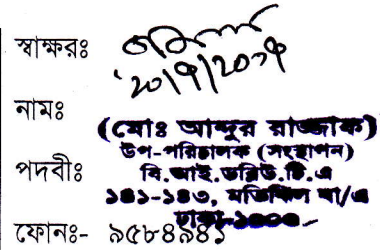 স্বাক্ষরঃ
২০/৭/২০১৭
নামঃ
(মোঃ আব্দুর রাজ্জাক)
উপ-পরিচালক (সংস্থাপন)
পদবীঃ
বি.আই.ডব্লিউ.টি.এ
১৪১-১৪৩, মতিঝিল বা/এ
ঢাকা-১০০০
ফোনঃ- ৯৫৮৪৯৪১